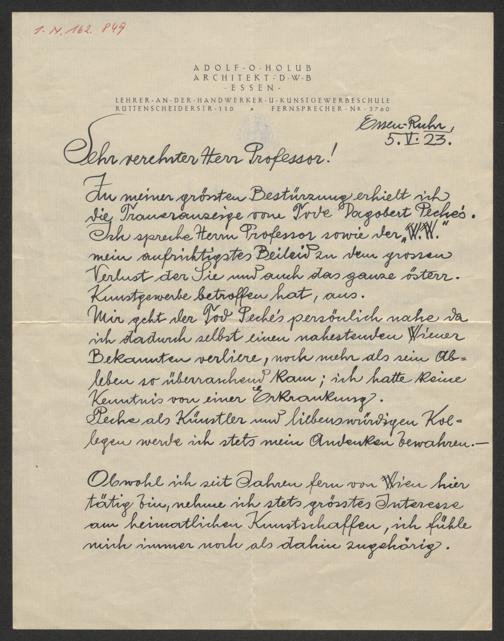 1. N. 162.849
ADOLF-O-HOLUB
ARCHITEKT-D-W-B
-ESSEN-
LEHRER-AN-DER-HANDWERKER-U-KUNSTGEWERBESCHULE
RÜTTENSCHEIDERSTR-110 • FERNSPRECHER-NR-3760
Essen-Ruhr,
5.V.23.
Sehr verehrter Herr Professor!
Zu meiner grössten Bestürzung erhielt ich
die Traueranzeige vom Tode Dagobert Peche's.
Ich spreche Herrn Professor sowie der „W.W."
mein aufrichtigstes Beileid zu dem grossen
Verlust der Sie und auch das ganze österr.
Kunstgewerbe betroffen hat, aus.
Mir geht der Tod Peché's persönlich nahe da
ich dadurch selbst einen nahestenden Wiener
Bekannten verliere, noch mehr als sein Ab-
leben so überraschend kam; ich hatte keine
Kenntnis von einer Erkrankung.
Peche als Künstler und liebenswürdigen Kol-
legen werde ich stets mein Andenken bewahren.—
Obwohl ich seit Jahren fern von Wien hier
tätig bin, nehme ich stets grösstes Interesse
am heimatlichen Kunstschaffen, ich fühle
mich immer noch als dahin zugehörig.